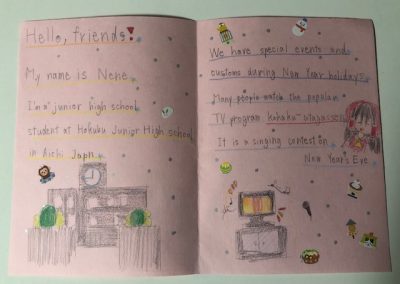 Hello, friends!
My name is Nene.
I'm a junior high school
student at Hokubu Junior High school
in Aichi Japn.
We have special events and
customs during New Year holidays.
Many people watch the popular
TV program kohaku-utagassen.
It is a singing contest on
New Year's Eve